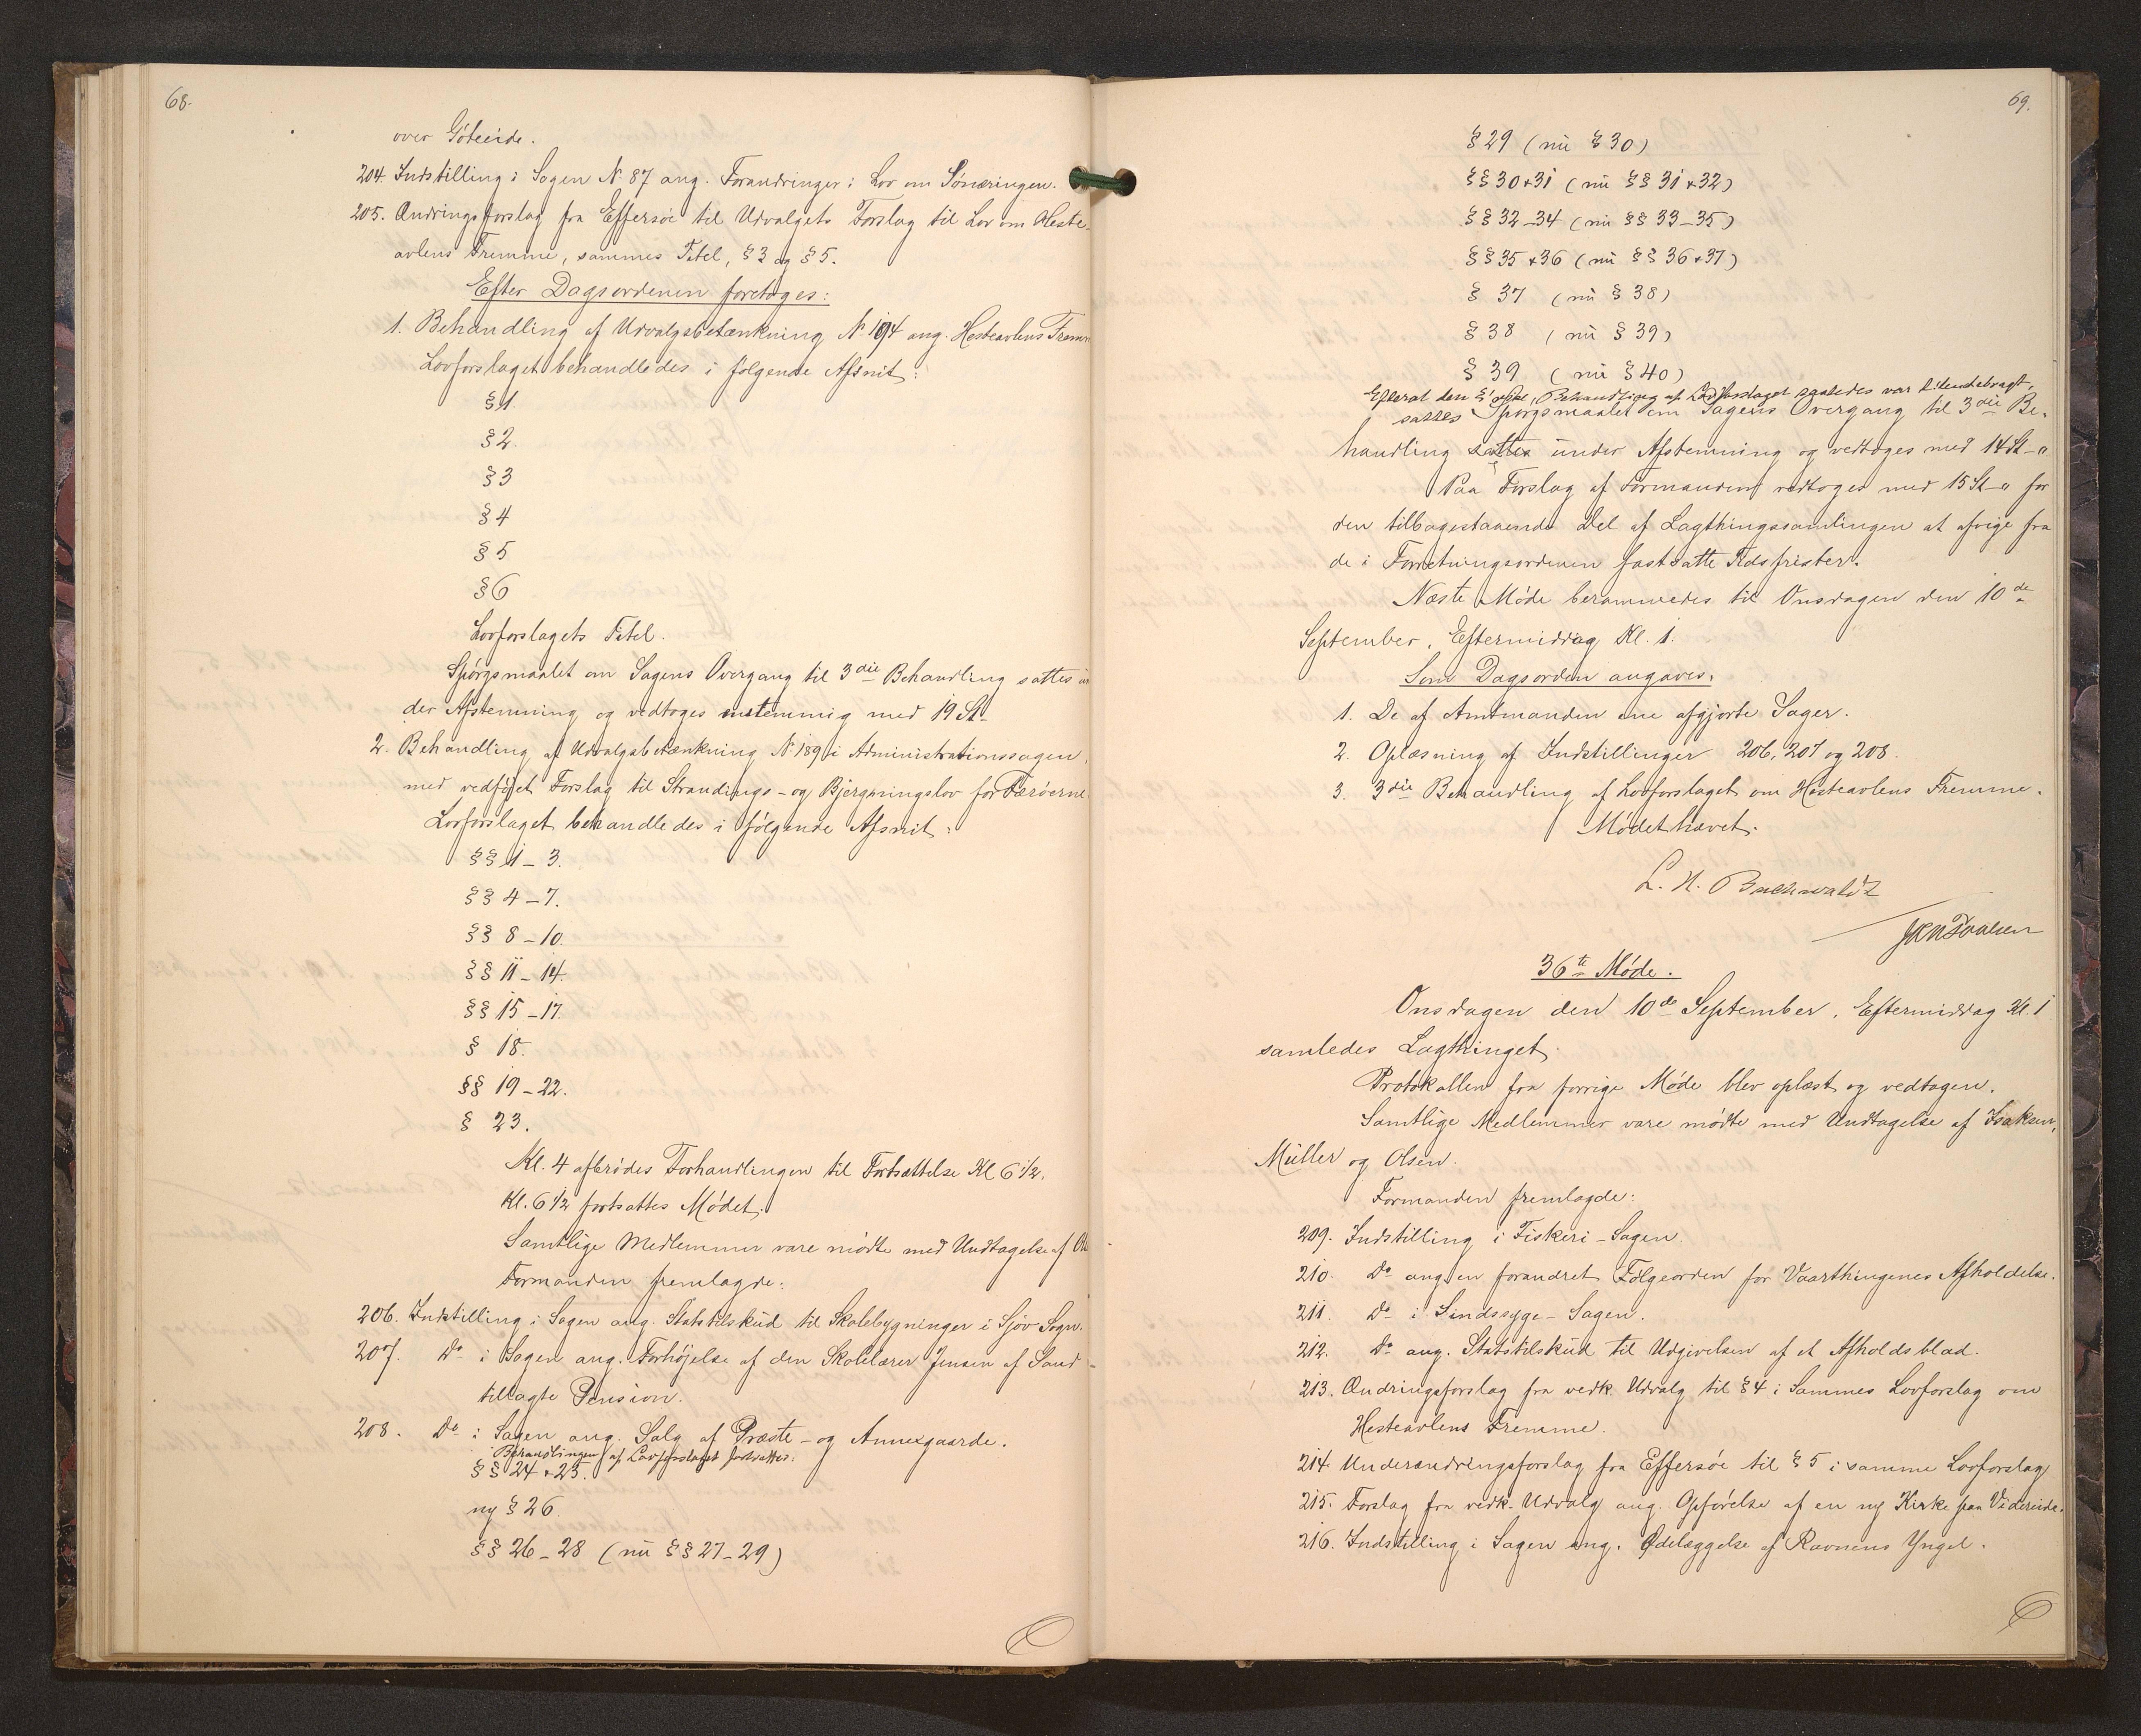 68.
over Göteeide.
204. Indstilling i Sagen No 87 ang. Forandringer i Lov om Sönæringen.
205. Ændringsforslag fra Effersöe til Udvalgets Forslag til Lov om Heste-
avlens Fremme, sammes Titel, § 3 og § 5.
Efter Dagsordenen foretoges:
1. Behandling af Udvalgsbetænkning No 194 ang. Hesteavlens Frem
Lovforslaget behandledes i følgende Afsnit:
§ 1.
§ 2.
§ 3
§ 4
§ 5
§ 6
Lovforslagets Titel.
Spörgsmaalet om Sagens Overgang til 3die Behandling sattes un
der Afstemning og vedtoges enstemmig med 19 St.
2. Behandling af Udvalgsbetænkning No 189 i Administrationssagen,
med vedföjet Forslag til Strandings- og Bjergningslov for Færöerne
Lovforslaget behandledes i fölgende Afsnit:
§§ 1 – 3.
§§ 4 – 7.
§§ 8 – 10.
§§ 11 – 14.
§§ 15 – 17.
§ 18.
§§ 19 – 22.
§ 23.
Kl. 4 afbrödes Forhandlingen til Fortsættelse Kl 6 1/2.
Kl. 6 1/2 fortsattes Mödet.
Samtlige Medlemmer vare mödte med Undtagelse af
Formanden fremlagde:
206. Indstilling i Sagen ang. Statstilskud til Skolebygninger i Sjöv Sogn.
207. Do i Sagen ang. Forhöjelse af den Skolelærer Jensen af Sand
tillagte Pension.
208. Do i Sagen ang. Salg af Præste- og Annexgaarde.
Behandlingen af Lovforslaget fortsattes:
§§ 24 + 25.
ny § 26.
§§ 26 – 28 (nu §§ 27 – 29)
69.
§ 29 (nu § 30)
§§ 30 + 31 (nu §§ 31 + 32)
§§ 32 – 34 (nu §§ 33 – 35)
§§ 35 + 36 (nu §§ 36 + 37)
§ 37 (nu § 38)
§ 38 (nu § 39)
§ 39 (nu § 40)
Efterat den Behandling af Lovforslaget saaledes var tilendebragt,
sattes Spörgsmaalet om Sagens Overgang til 3die Be-
handling sattes under Afstemning og vedtoges med 14 St
Paa Forslag af Formanden vedtoges med 15 St for
den tilbagestaaende Del af Lagthingssamlingen at afvige fra
de i Forretningsordenen fastsatte Tidsfrister.
Næste Möde berammedes til Onsdagen den 10de
September, Eftermiddag Kl. 1.
Som Dagsorden angaves:
1. De af Amtmanden ene afgjorte Sager.
2. Oplæsning af Indstillinger 206, 207 og 208.
3. 3die Behandling af Lovforslaget om Hesteavlens Fremme.
Mödet hævet.
L. H. Buchwaldt
36te Möde.
Onsdagen den 10de September, Eftermiddag Kl. 1
samledes Lagthinget.
Protokollen fra forrige Möde blev oplæst og vedtagen.
Samtlige Medlemmer vare mödte med Undtagelse af Isaksen,
Müller og Olsen.
Formanden fremlagde:
209. Indstilling i Fiskeri-Sagen.
210. Do ang. en forandret Fölgeorden for Vaarthingenes Afholdelse.
211. Do i Sindssyge-Sagen.
212. Do ang. Statstilskud til Udgivelsen af et Afholdsblad.
213. Ændringsforslag fra vedk. Udvalg til § 4 i Sammes Lovforslag om
Hesteavlens Fremme.
214. Underændringsforslag fra Effersöe til § 5 i samme Lovforslag
215. Forslag fra vedk. Udvalg ang. Opförelse af en ny Kirke paa Videreide.
216. Indstilling i Sagen ang. Ödelæggelse af Ravnens Yngel.